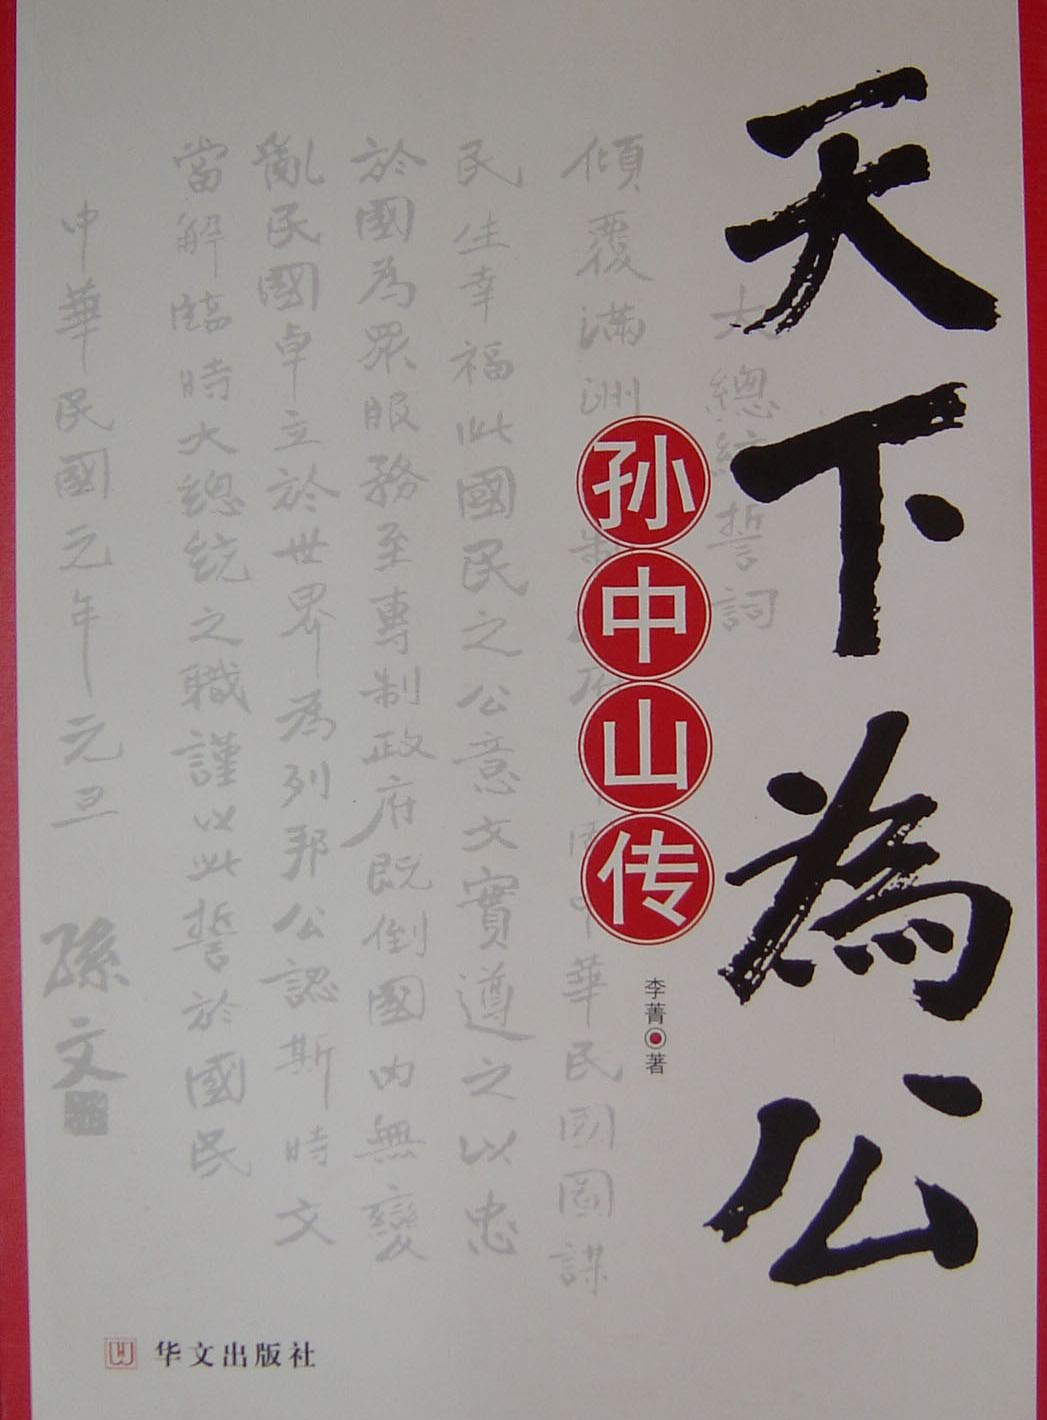 天下為公
孙中山传
李菁 著
大總統誓詞
傾覆滿洲專制政府鞏固中華民國圖謀
民生幸福此國民之公意文實遵之以忠
於國為眾服務至專制政府既倒國內無變
亂民國卓立於世界為列邦公認斯時文
當解臨時大總統之職謹以此誓於國民
中華民國元年元旦
孫文
华文出版社